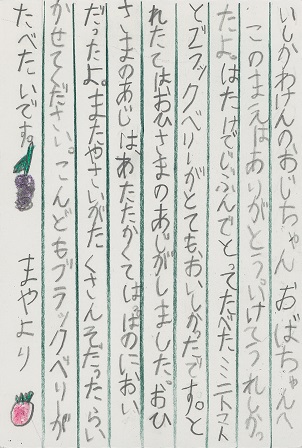 いしかわけんのおじちゃん おばちゃんへ
このまえはありがとう。いけてうれしか
たよ。はたけでじぶんでとってたべたミニトマト
とブラックベリーがとてもおいしかったです。と
れたてはおひさまのあじがしました。おひ
さまのあじは、あたたかくてはっぱのにおい
だったよ。またやさいがたくさんそだったらい
かせてください。こんどもブラックベリーが
たべたいです。 まやより